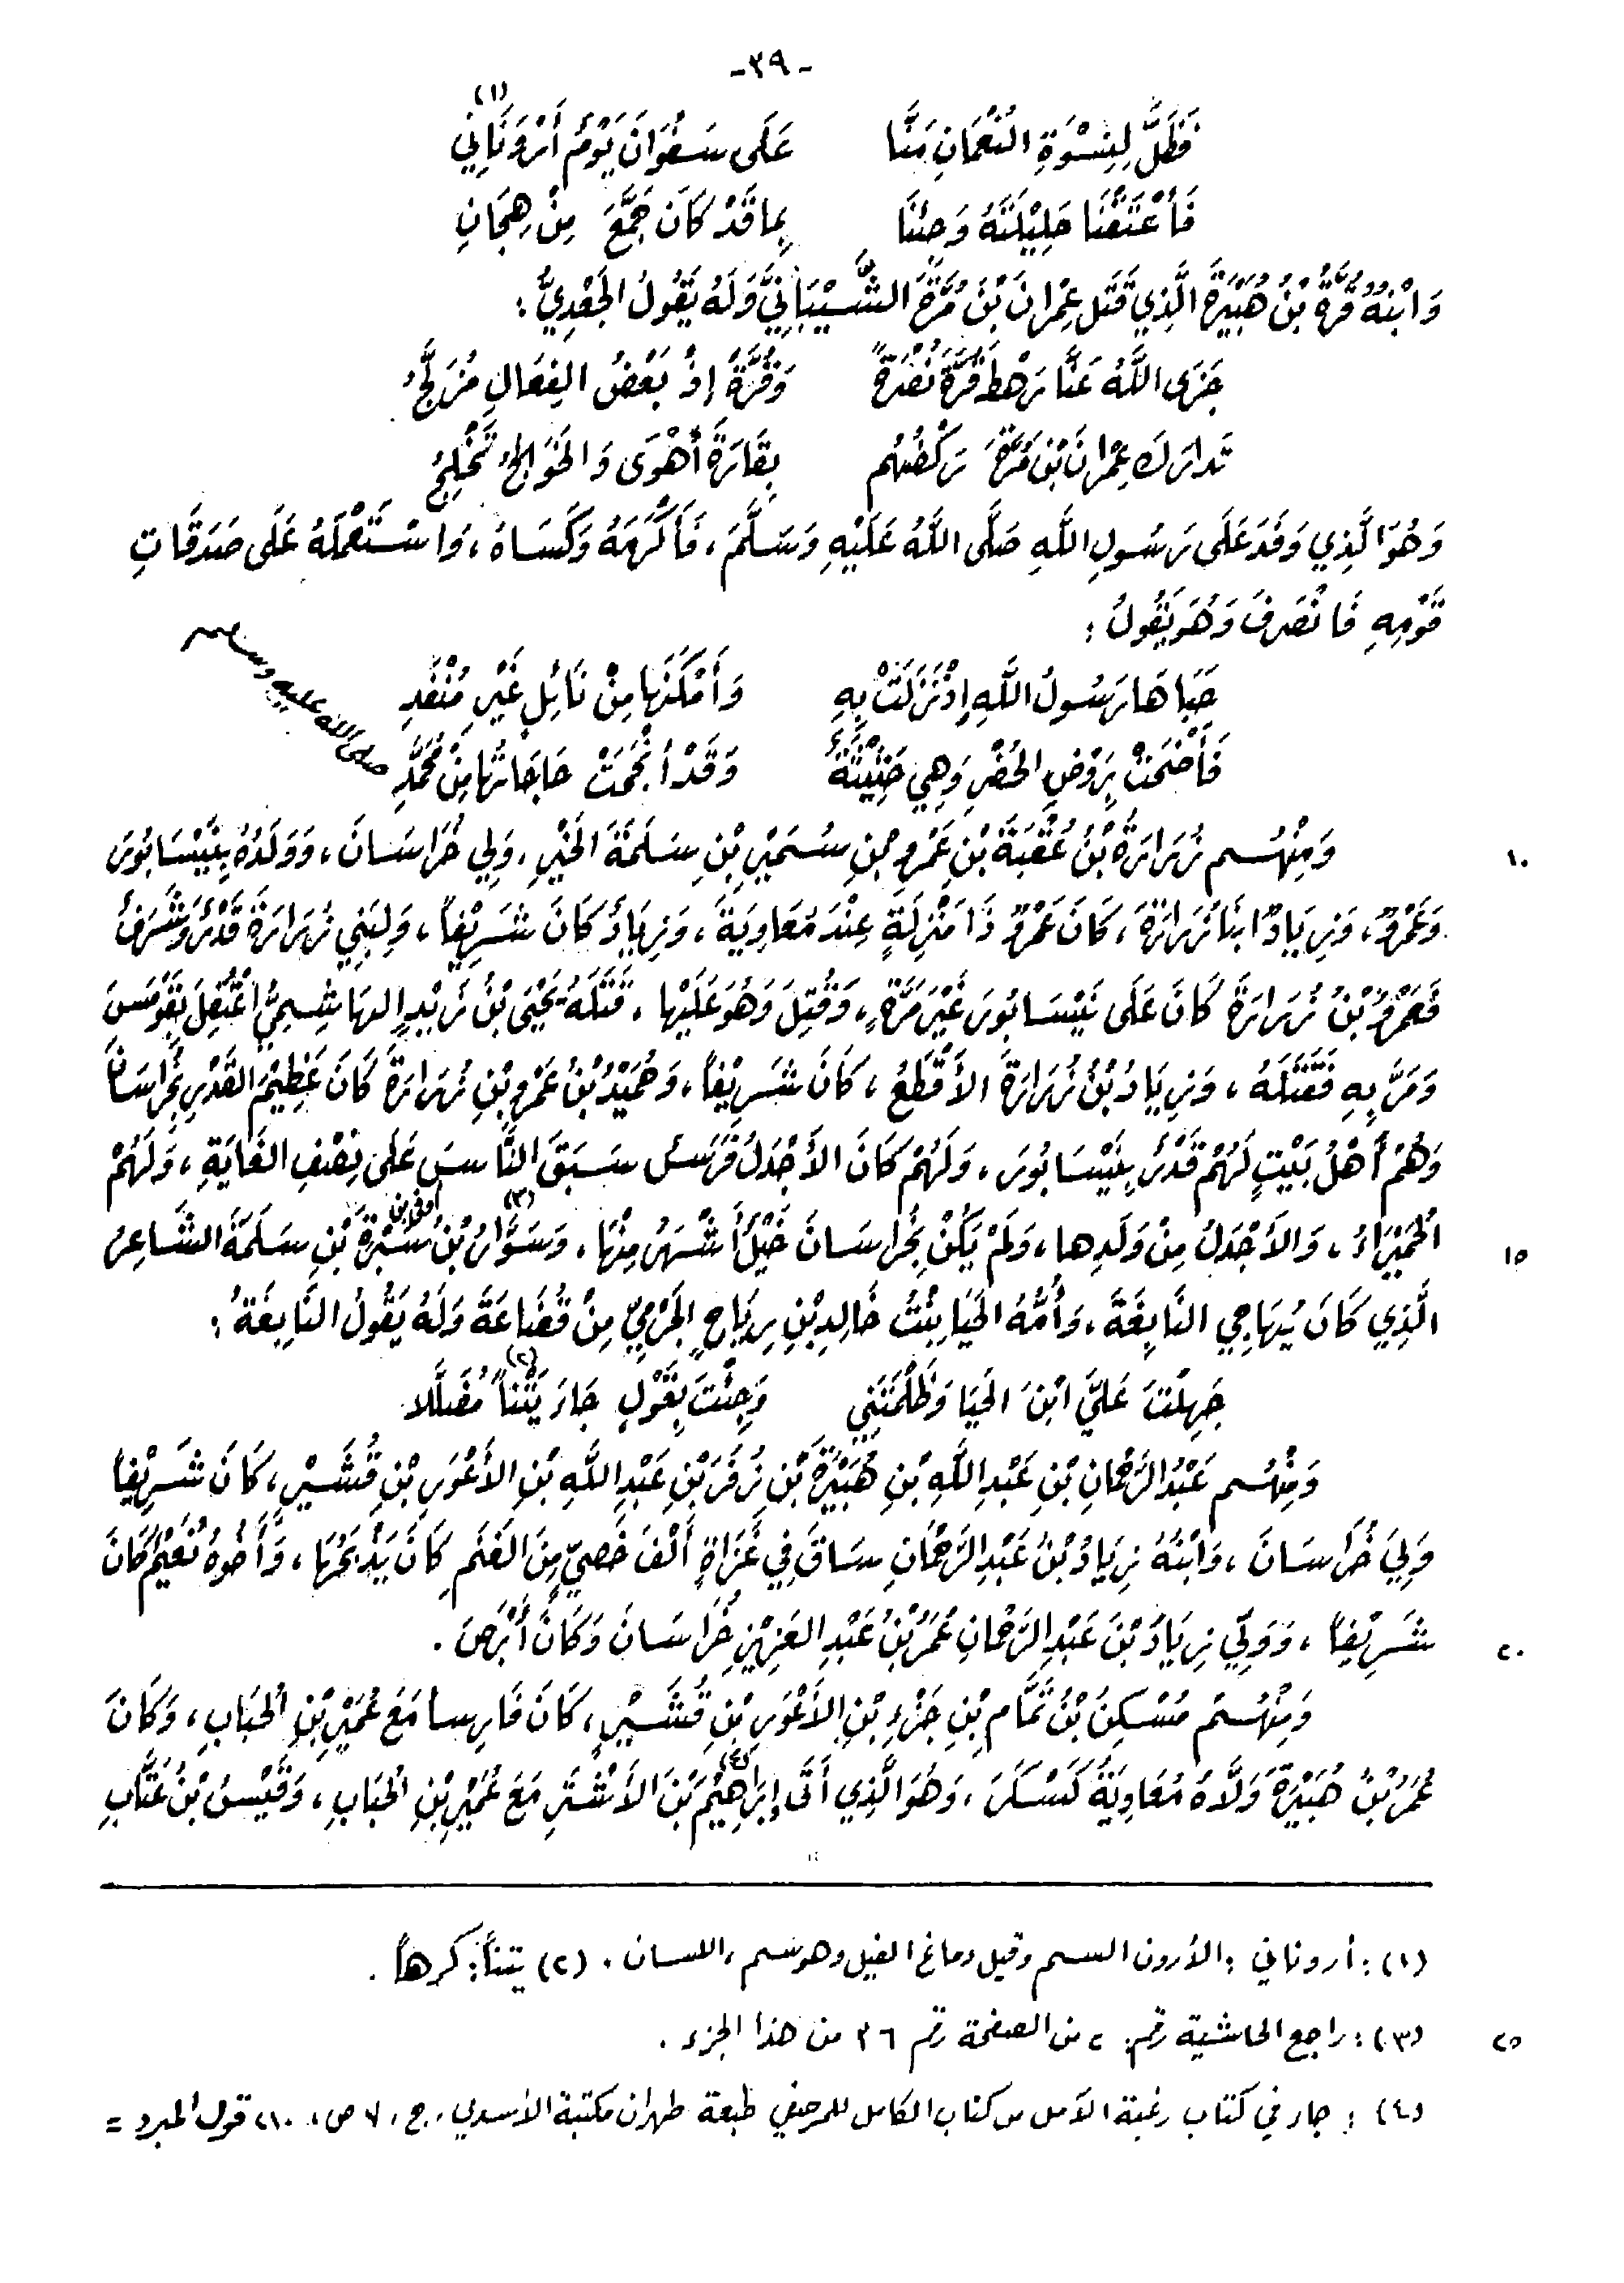 -٣٩-
فَظَلَّ لِنِسْوَةِ النُّعْمَانِ مِنَّا عَلَى سَفَوَانَ يَوْمٌ أَرْوَنَانِي (١)
فَأَعْتَقْنَا حَلِيْلَتَهُ وَجِئْنَا بِمَا قَدْ كَانَ جَمَّعَ مِنْ هِجَانِ
وَابْنُهُ قُرَّةُ بْنُ هُبَيْرَةَ الَّذِي قَتَلَ عِمْرَانَ بْنَ مُرَّةَ الشَّيْبَانِيَّ وَلَهُ يَقُولُ الجَعْدِيُّ :
جَزَى اللَّهُ عَنَّا رَهْطَ قُرَّةَ نُصْرَةً وَقُرَّةَ إِذْ بَعْضُ الفِعَالِ مُزَلَّجُ
تَدَارَكَ عِمْرَانَ بْنَ مُرَّةَ رَكْضُهُم بِقَارَةَ أَهْوَى وَالخَوَالِجُ تَخْلِجُ
وَهُوَ الَّذِي وَفَدَ عَلَى رَسُولِ اللَّهِ صَلَّى اللَّهُ عَلَيْهِ وَسَلَّمَ، فَأَكْرَمَهُ وَكَسَاهُ، وَاسْتَعْمَلَهُ عَلَى صَدَقَاتِ
قَوْمِهِ فَانْصَرَفَ وَهُوَ يَقُولُ :
حَبَاهَا رَسُولُ اللَّهِ إِذْ نَزَلَتْ بِهِ وَأَمْكَنَهَا مِنْ نَائِلٍ غَيْرِ مُنْفَدِ
فَأَضْحَتْ بِرَوْضِ الخُضْرِ وَهِي حَثِيْثَةٌ وَقَدْ أَنْجَحَتْ حَاجَاتُهَا مِنْ مُحَمَّدِ صلى الله عليه وسلم
١٠ وَمِنْهُم زُرَارَةُ بْنُ عُقْبَةَ بْنِ عَمْرِو بْنِ سُمَيْرِ بْنِ سَلَمَةَ الخَيْرِ، وَلِي خُرَاسَانَ، وَوَلَدُهُ بِنَيْسَابُورَ
وَعَمْرٌو، وَزِيَادٌ ابْنَا زُرَارَةَ، كَانَ عَمْرٌو ذَا مَنْزِلَةٍ عِنْدَ مُعَاوِيَةَ، وَزِيَادٌ كَانَ شَرِيْفاً، وَلِبَنِي زُرَارَةَ قَدْرٌ وَشَرَفٌ
فَعَمْرُو بْنُ زُرَارَةَ كَانَ عَلَى نَيْسَابُورَ غَيْرَ مَرَّةٍ، وَقُتِلَ وَهُوَ عَلَيْهَا، قَتَلَهُ يَحْيَى بْنُ زَيْدٍ الهَاشِمِيُّ اعْتُقِلَ بِقَوْمَسَ
وَمَرَّ بِهِ فَقَتَلَهُ، وَزِيَادُ بْنُ زُرَارَةَ الأَقْطَعُ، كَانَ شَرِيْفاً، وَحُمَيْدُ بْنُ عَمْرِو بْنِ زُرَارَةَ كَانَ عَظِيْمَ القَدْرِ بِخُرَاسَانَ
وَهُمْ أَهْلُ بَيْتٍ لَهُمْ قَدْرٌ بِنَيْسَابُورَ، وَلَهُمْ كَانَ الأَجْدَلُ فَرَسٌ سَبَقَ النَّاسَ عَلَى نِصْفِ الغَايَةِ، وَلَهُمْ
١٥ الحُمَيْرَاءُ، وَالأَجْدَلُ مِنْ وَلَدِهَا، وَلَمْ يَكُنْ بِخُرَاسَانَ خَيْلٌ أَشْهَرُ مِنْهَا، وَسَوَّارُ بْنُ (٣) أوفى بن سَبْرَةَ بْنِ سَلَمَةَ الشَّاعِرُ
الَّذِي كَانَ يُهَاجِي النَّابِغَةَ، وَأُمُّهُ الحَيَا بِنْتُ خَالِدِ بْنِ رِيَاحٍ الجَرْمِيِّ مِنْ قُضَاعَةَ وَلَهُ يَقُولُ النَّابِغَةُ :
جَهِلْتَ عَلَيَّ ابْنَ الحَيَا وَظَلَمْتَنِي وَجِئْتَ بِقَوْلٍ جَارَ يَتْناً (٢) مُضَلَّلا
وَمِنْهُم عَبْدُ الرَّحْمَانِ بْنِ عَبْدِ اللَّهِ بْنِ هُبَيْرَةَ بْنِ زُفَرَ بْنِ عَبْدِ اللَّهِ بْنِ الأَعْوَرِ بْنِ قُشَيْرٍ، كَانَ شَرِيْفاً
وَلِيَ خُرَاسَانَ، وَابْنُهُ زِيَادُ بْنُ عَبْدِ الرَّحْمَانِ سَاقَ فِي غَزَاةٍ أَلْفَ خَصِيٍّ مِنَ الغَنَمِ كَانَ يَذْبَحُهَا، وَأَخُوهُ نُعَيْمٌ كَانَ
٢٠ شَرِيْفاً، وَوَلِّيَ زِيَادَ بْنَ عَبْدِ الرَّحْمَانِ عُمَرُ بْنُ عَبْدِ العَزِيْزِ خُرَاسَانَ وَكَانَ أَبْرَصَ .
وَمِنْهُمْ مُسْكِنُ بْنُ تَمَّامِ بْنِ جَزْءِ بْنِ الأَعْوَرِ بْنِ قُشَيْرٍ، كَانَ فَارِسا مَعَ عُمَيْرِ بْنِ الحُبَابِ، وَكَانَ
عُمَرُ بْنُ هُبَيْرَةَ وَلَّاهُ مُعَاوِيَةُ كَسْكَرَ، وَهُوَ الَّذِي أَتَى إِبْرَاهِيْمَ (٤) بْنَ الأَشْتَرِ مَعَ عُمَيْرِ بْنِ الحُبَابِ، وَقَيْسُ بْنُ عَتَّابِ
(١) : أروناني : الأرون السم وقيل دماغ الفيل وهو سم، اللسان . (٢) يتناً : كرهاً .
٢٥ (٣) : راجع الحاشية رقم: ٢ من الصفحة رقم ٣٦ من هذا الجزء .
(٤) : جاء في كتاب رغبة الآمل من كتاب الكامل للمرصفي طبعة طهران مكتبة الأسدي، ج، ٧ ص، ٢١٠ قول المبرد =